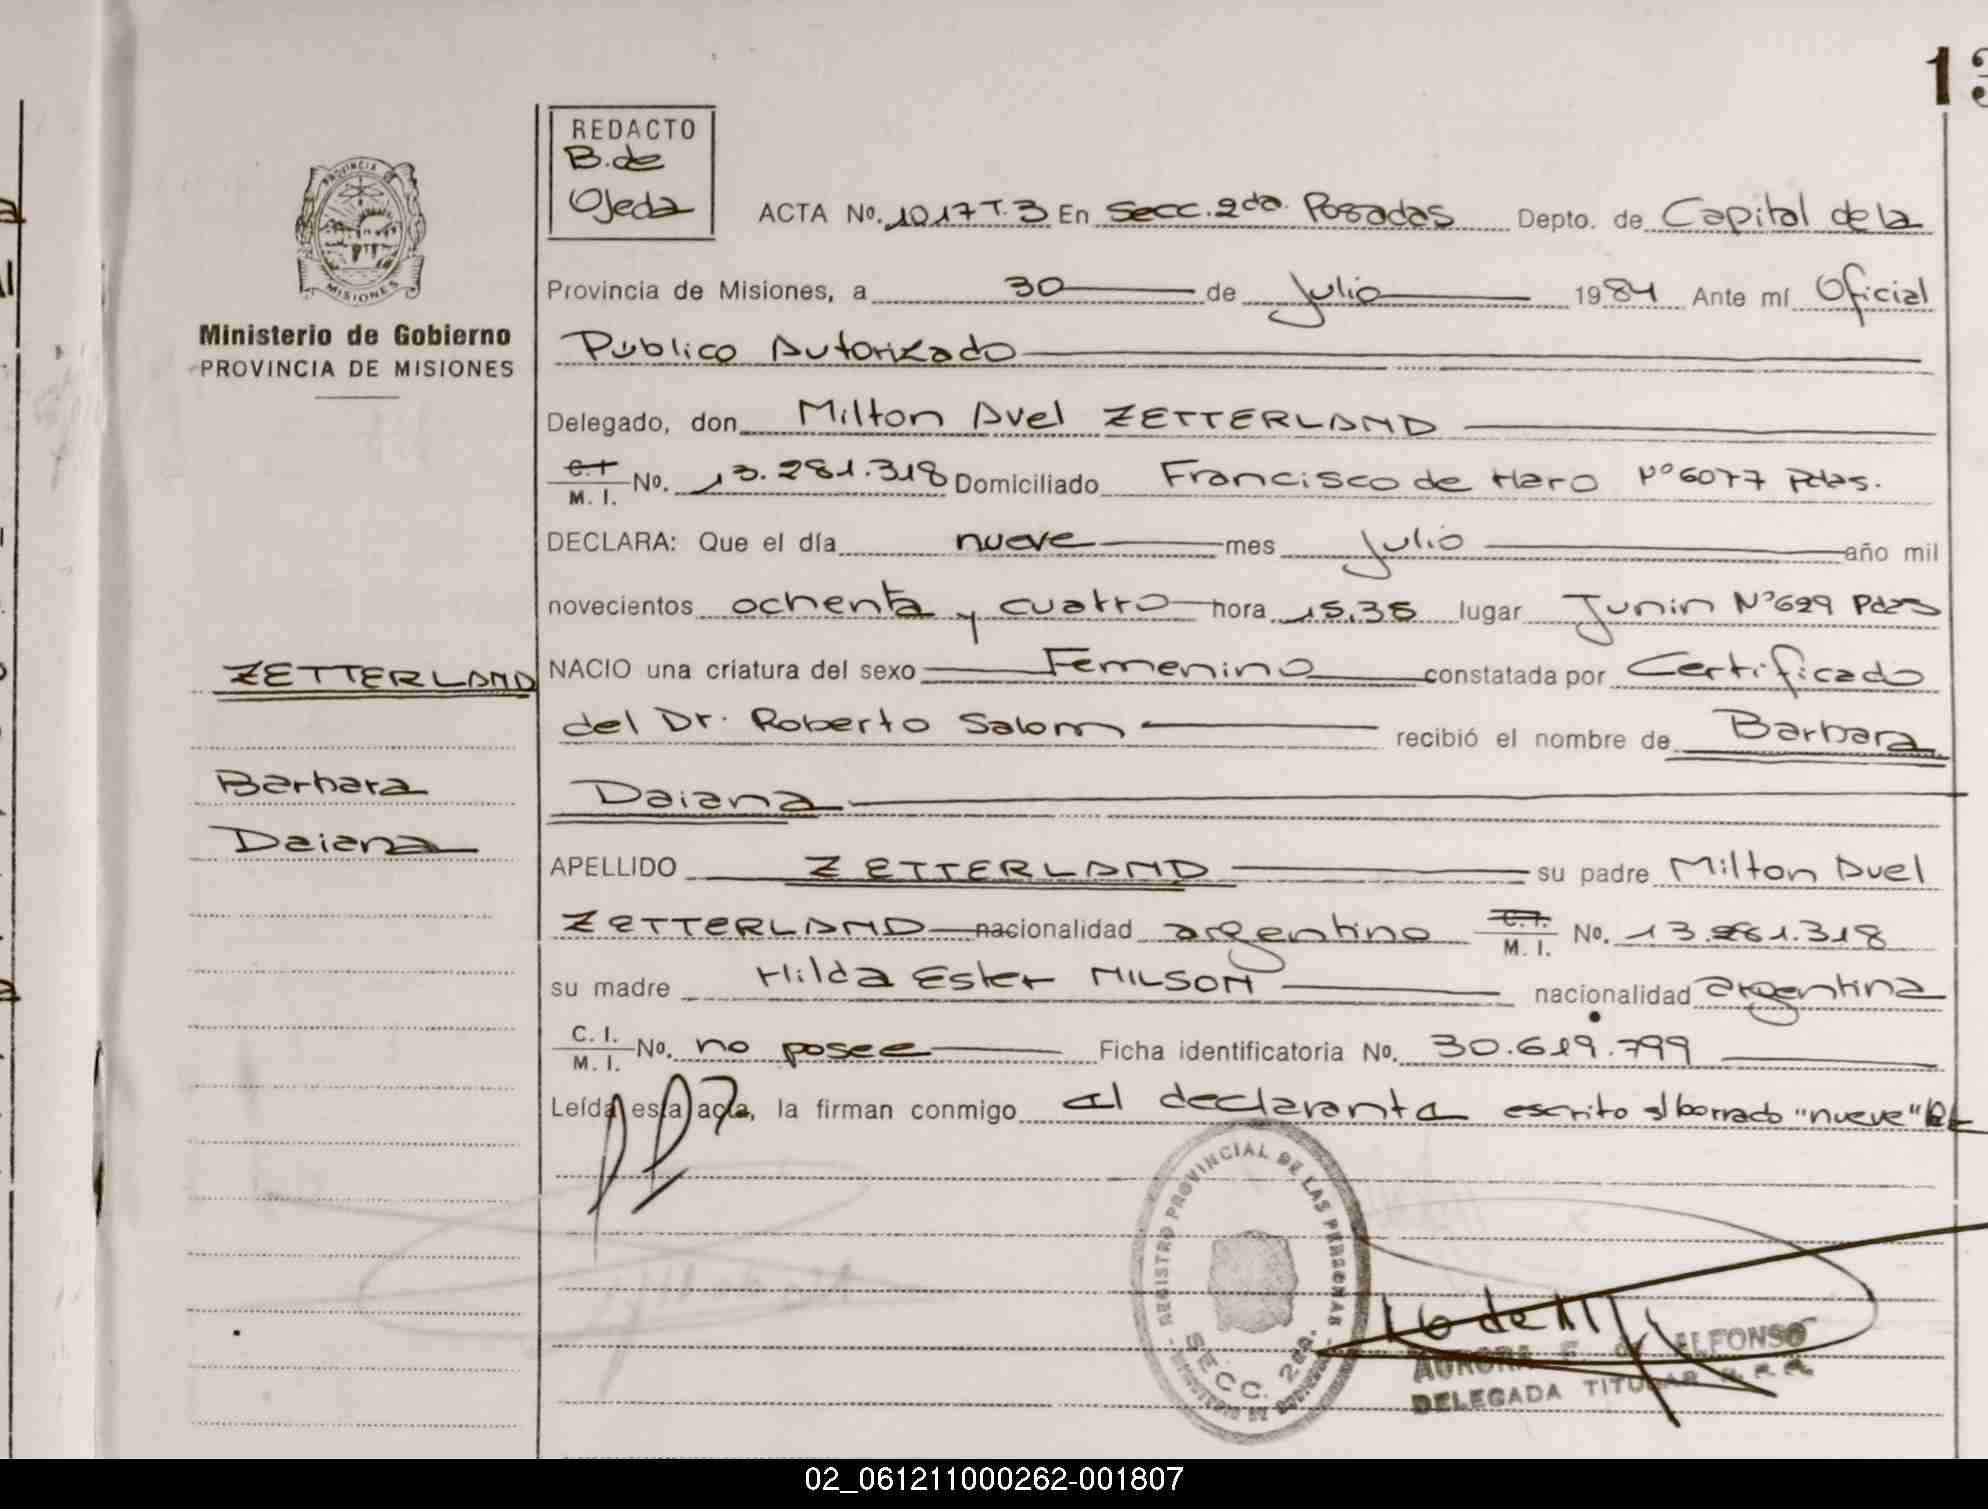 13
REDACTO
B. de
Ojeda
PROVINCIA DE
MISIONES
Ministerio de Gobierno
PROVINCIA DE MISIONES
ACTA No. 1017 T.3 En Secc. 2da. Posadas Depto. de Capital de la
Provincia de Misiones, a 30 de Julio 1984 Ante mí Oficial
Público Autorizado
Delegado, don Milton Avel ZETTERLAND
C.I. M. I. No. 13.281.318 Domiciliado Francisco de Haro Nº 6077 Pdas.
DECLARA: Que el día nueve mes Julio año mil
novecientos ochenta y cuatro hora 15,35 lugar Junin Nº 629 Pdas
ZETTERLAND
NACIO una criatura del sexo Femenino constatada por Certificado
del Dr. Roberto Salom recibió el nombre de Barbara
Barbara
Daiana
Daiana
APELLIDO ZETTERLAND su padre Milton Avel
ZETTERLAND nacionalidad argentino C.I. M. I. No. 13.281.318
su madre Hilda Ester NILSON nacionalidad argentina
C. I. M. I. No. no posee Ficha identificatoria No. 30.619.799
Leída esta acta, la firman conmigo el declarante escrito s/borrado "nueve"
REGISTRO PROVINCIAL DE LAS PERSONAS
SECC. 2da.
AURORA F. de ALFONSO
DELEGADA TITULAR
02_061211000262-001807